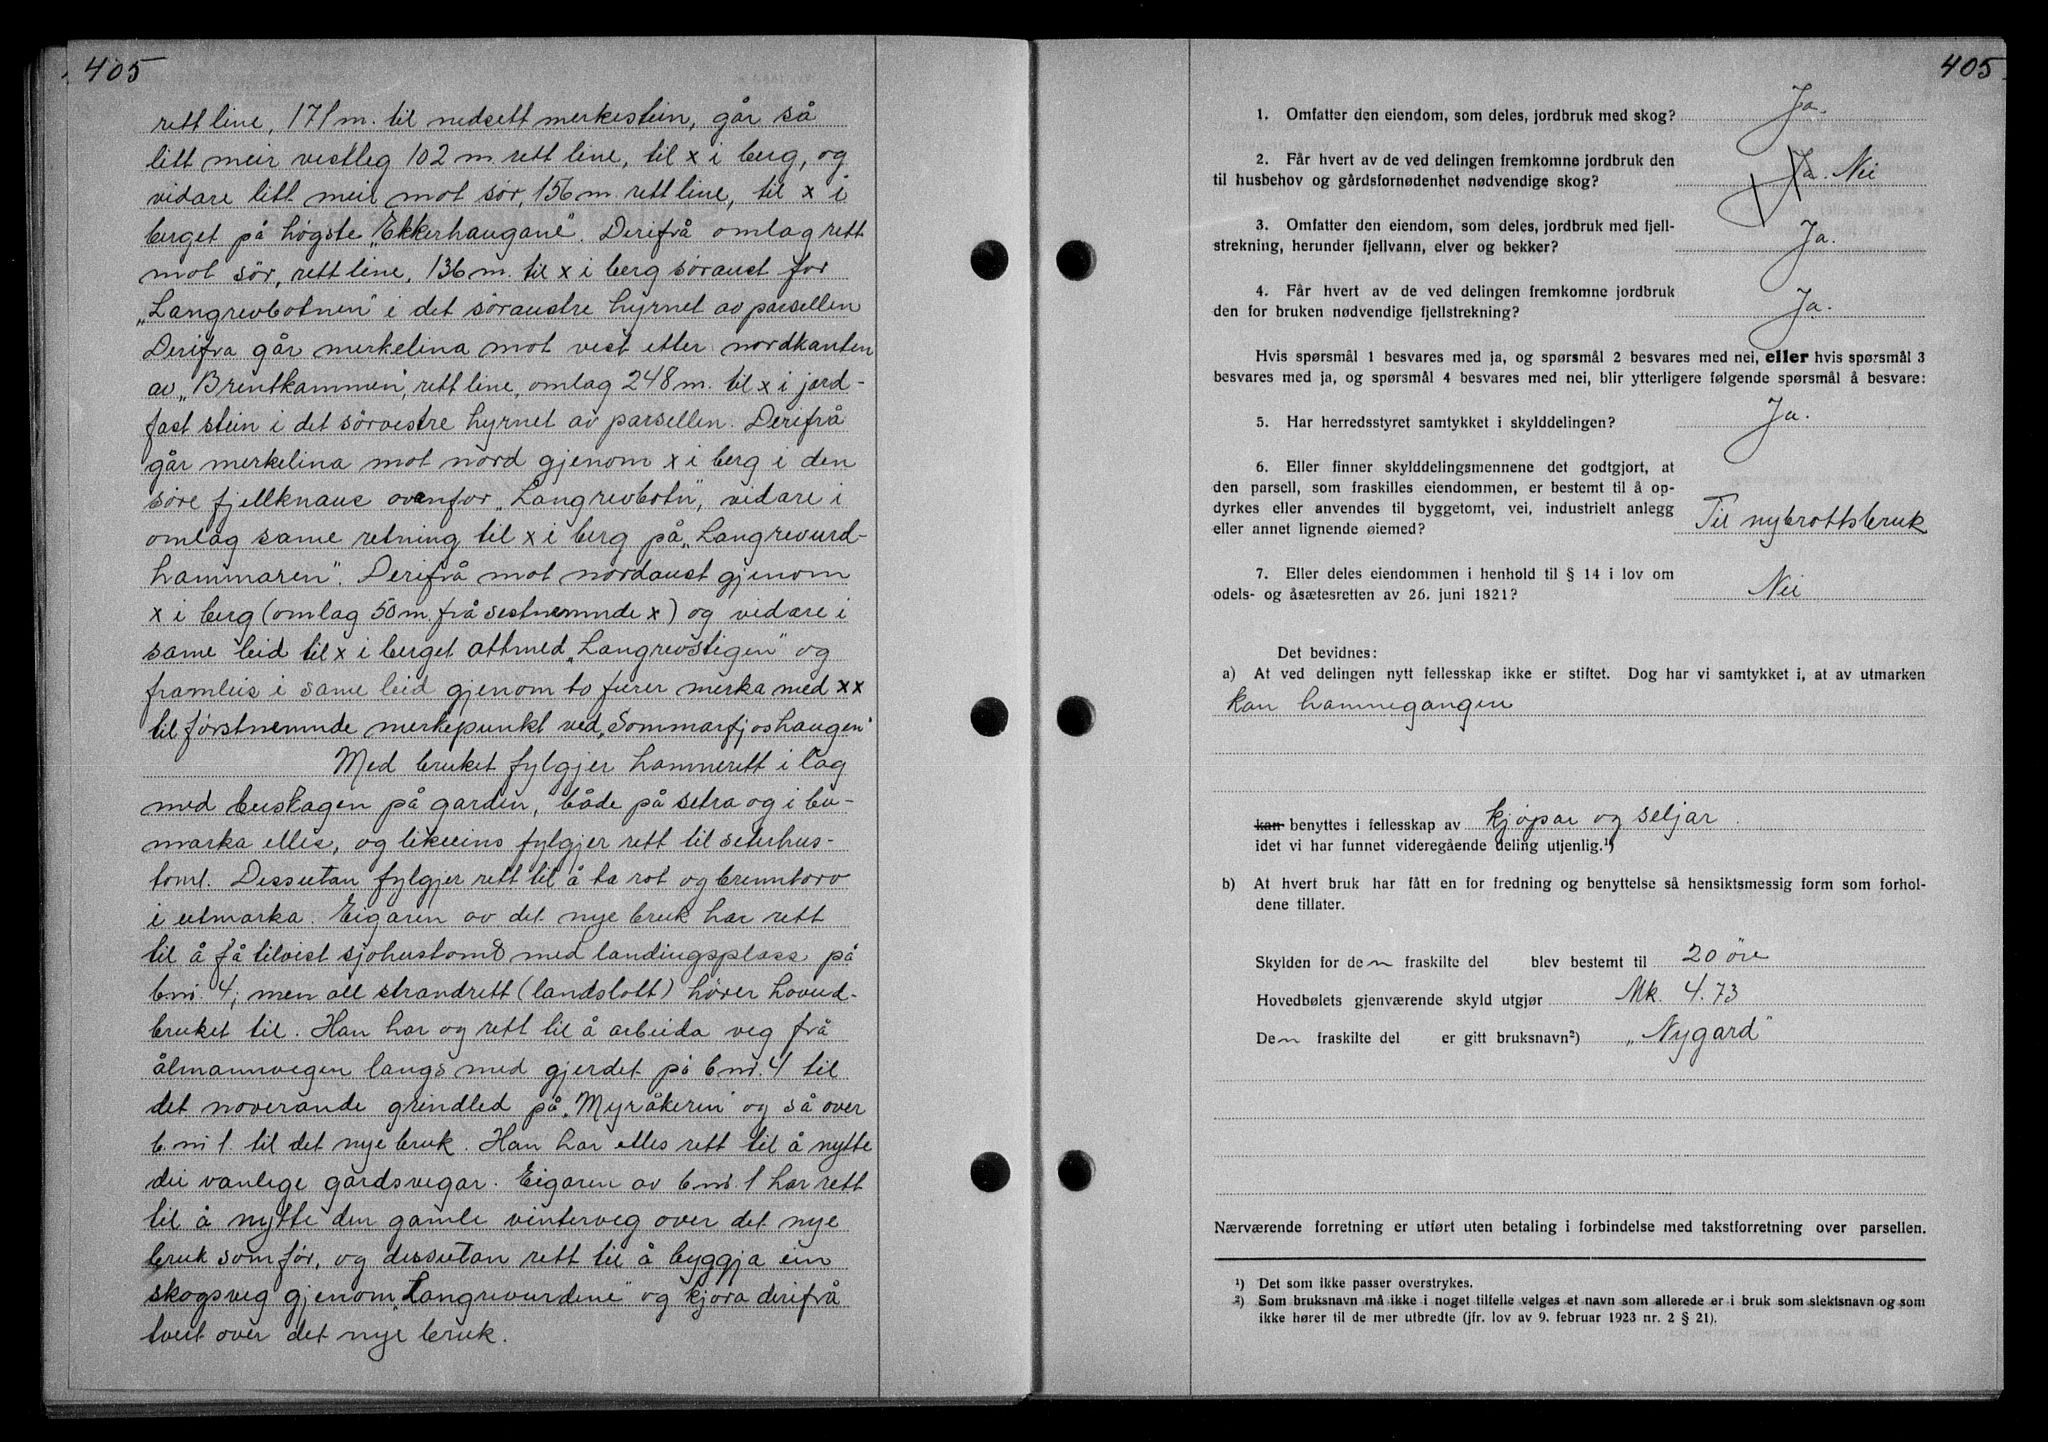 405
rett line, 171 m. til nedsett merkestein, går så
litt meir vestleg 102 m. rett line, til x i berg, og
vidare litt meir mot sør, 156 m. rett line, til x i
berget på høgste „Ekkerhaugane". Derifrå omlag rett
mot sør, rett line, 136 m. til x i berg søraust for
„Langrevbotnen" i det søraustre hyrnet av parsellen
Derifra går merkelina mot vest etter nordkanten
av „Brentkammen", rett line, omlag 248 m. til x i jord-
fast stein i det sørvestre hyrnet av parsellen. Derifrå
går merkelina mot nord gjenom x i berg i den
søre fjellknaus ovanfor „Langrevbotn", vidare i
omlag same retning til x i berg på „Langrevurd-
hammaren". Derifrå mot nordaust gjenom
x i berg (omlag 50 m. frå sestnemnde x) og vidare i
same leid til x i berget attmed „Langrevstigen" og
framleis i same leid gjenom to furer merka med xx
til førstnemnde merkepunkt ved „Sommarfjoshaugen"
Med bruket fylgjer hamnerett i lag
med buskapen på garden, både på setra og i bu-
marka elles, og likeeins fylgjer rett til seterhus-
tomt. Dessutan fylgjer rett til å ta rot og brenntorv
i utmarka. Eigaren av det nye bruk har rett
til å få tilvist sjøhustomt med landingsplass på
b.nr. 4; men all strandrett (landslott) hører hovud-
bruket til. Han har og rett til å arbeida veg frå
ålmannvegen langs med gjerdet på b.nr. 4 til
det noverande grindled på „Myråkeren" og så over
b.nr 1 til det nye bruk. Han har elles rett til å nytte
dei vanlege gardsvegar. Eigaren av b.nr. 1 har rett
til å nytte den gamle vinterveg over det nye
bruk som før, og dessutan rett til å byggja ein
skogsveg gjenom „Langrevurdene" og kjøra derifrå
tvert over det nye bruk.
405
1. Omfatter den eiendom, som deles, jordbruk med skog? Ja.
2. Får hvert av de ved delingen fremkomne jordbruk den
til husbehov og gårdsfornødenhet nødvendige skog? Ja. Nei
3. Omfatter den eiendom, som deles, jordbruk med fjell-
strekning, herunder fjellvann, elver og bekker? Ja.
4. Får hvert av de ved delingen fremkomne jordbruk
den for bruken nødvendige fjellstrekning? Ja.
Hvis spørsmål 1 besvares med ja, og spørsmål 2 besvares med nei, eller hvis spørsmål 3
besvares med ja, og spørsmål 4 besvares med nei, blir ytterligere følgende spørsmål å besvare:
5. Har herredsstyret samtykket i skylddelingen? Ja.
6. Eller finner skylddelingsmennene det godtgjort, at
den parsell, som fraskilles eiendommen, er bestemt til å op-
dyrkes eller anvendes til byggetomt, vei, industrielt anlegg
eller annet lignende øiemed? Til nybrottsbruk
7. Eller deles eiendommen i henhold til § 14 i lov om
odels- og åsætesretten av 26. juni 1821? Nei
Det bevidnes:
a) At ved delingen nytt fellesskap ikke er stiftet. Dog har vi samtykket i, at av utmarken
kan hamnegangen
kan benyttes i fellesskap av kjøpar og seljar.
idet vi har funnet videregående deling utjenlig.¹)
b) At hvert bruk har fått en for fredning og benyttelse så hensiktsmessig form som forhol-
dene tillater.
Skylden for den fraskilte del blev bestemt til 20 øre
Hovedbølets gjenværende skyld utgjør Mk. 4.73
Den fraskilte del er gitt bruksnavn²) „Nygard"
Nærværende forretning er utført uten betaling i forbindelse med takstforretning over parsellen.
¹) Det som ikke passer overstrykes.
²) Som bruksnavn må ikke i noget tilfelle velges et navn som allerede er i bruk som slektsnavn og som
ikke hører til de mer utbredte (jfr. lov av 9. februar 1923 nr. 2 § 21).